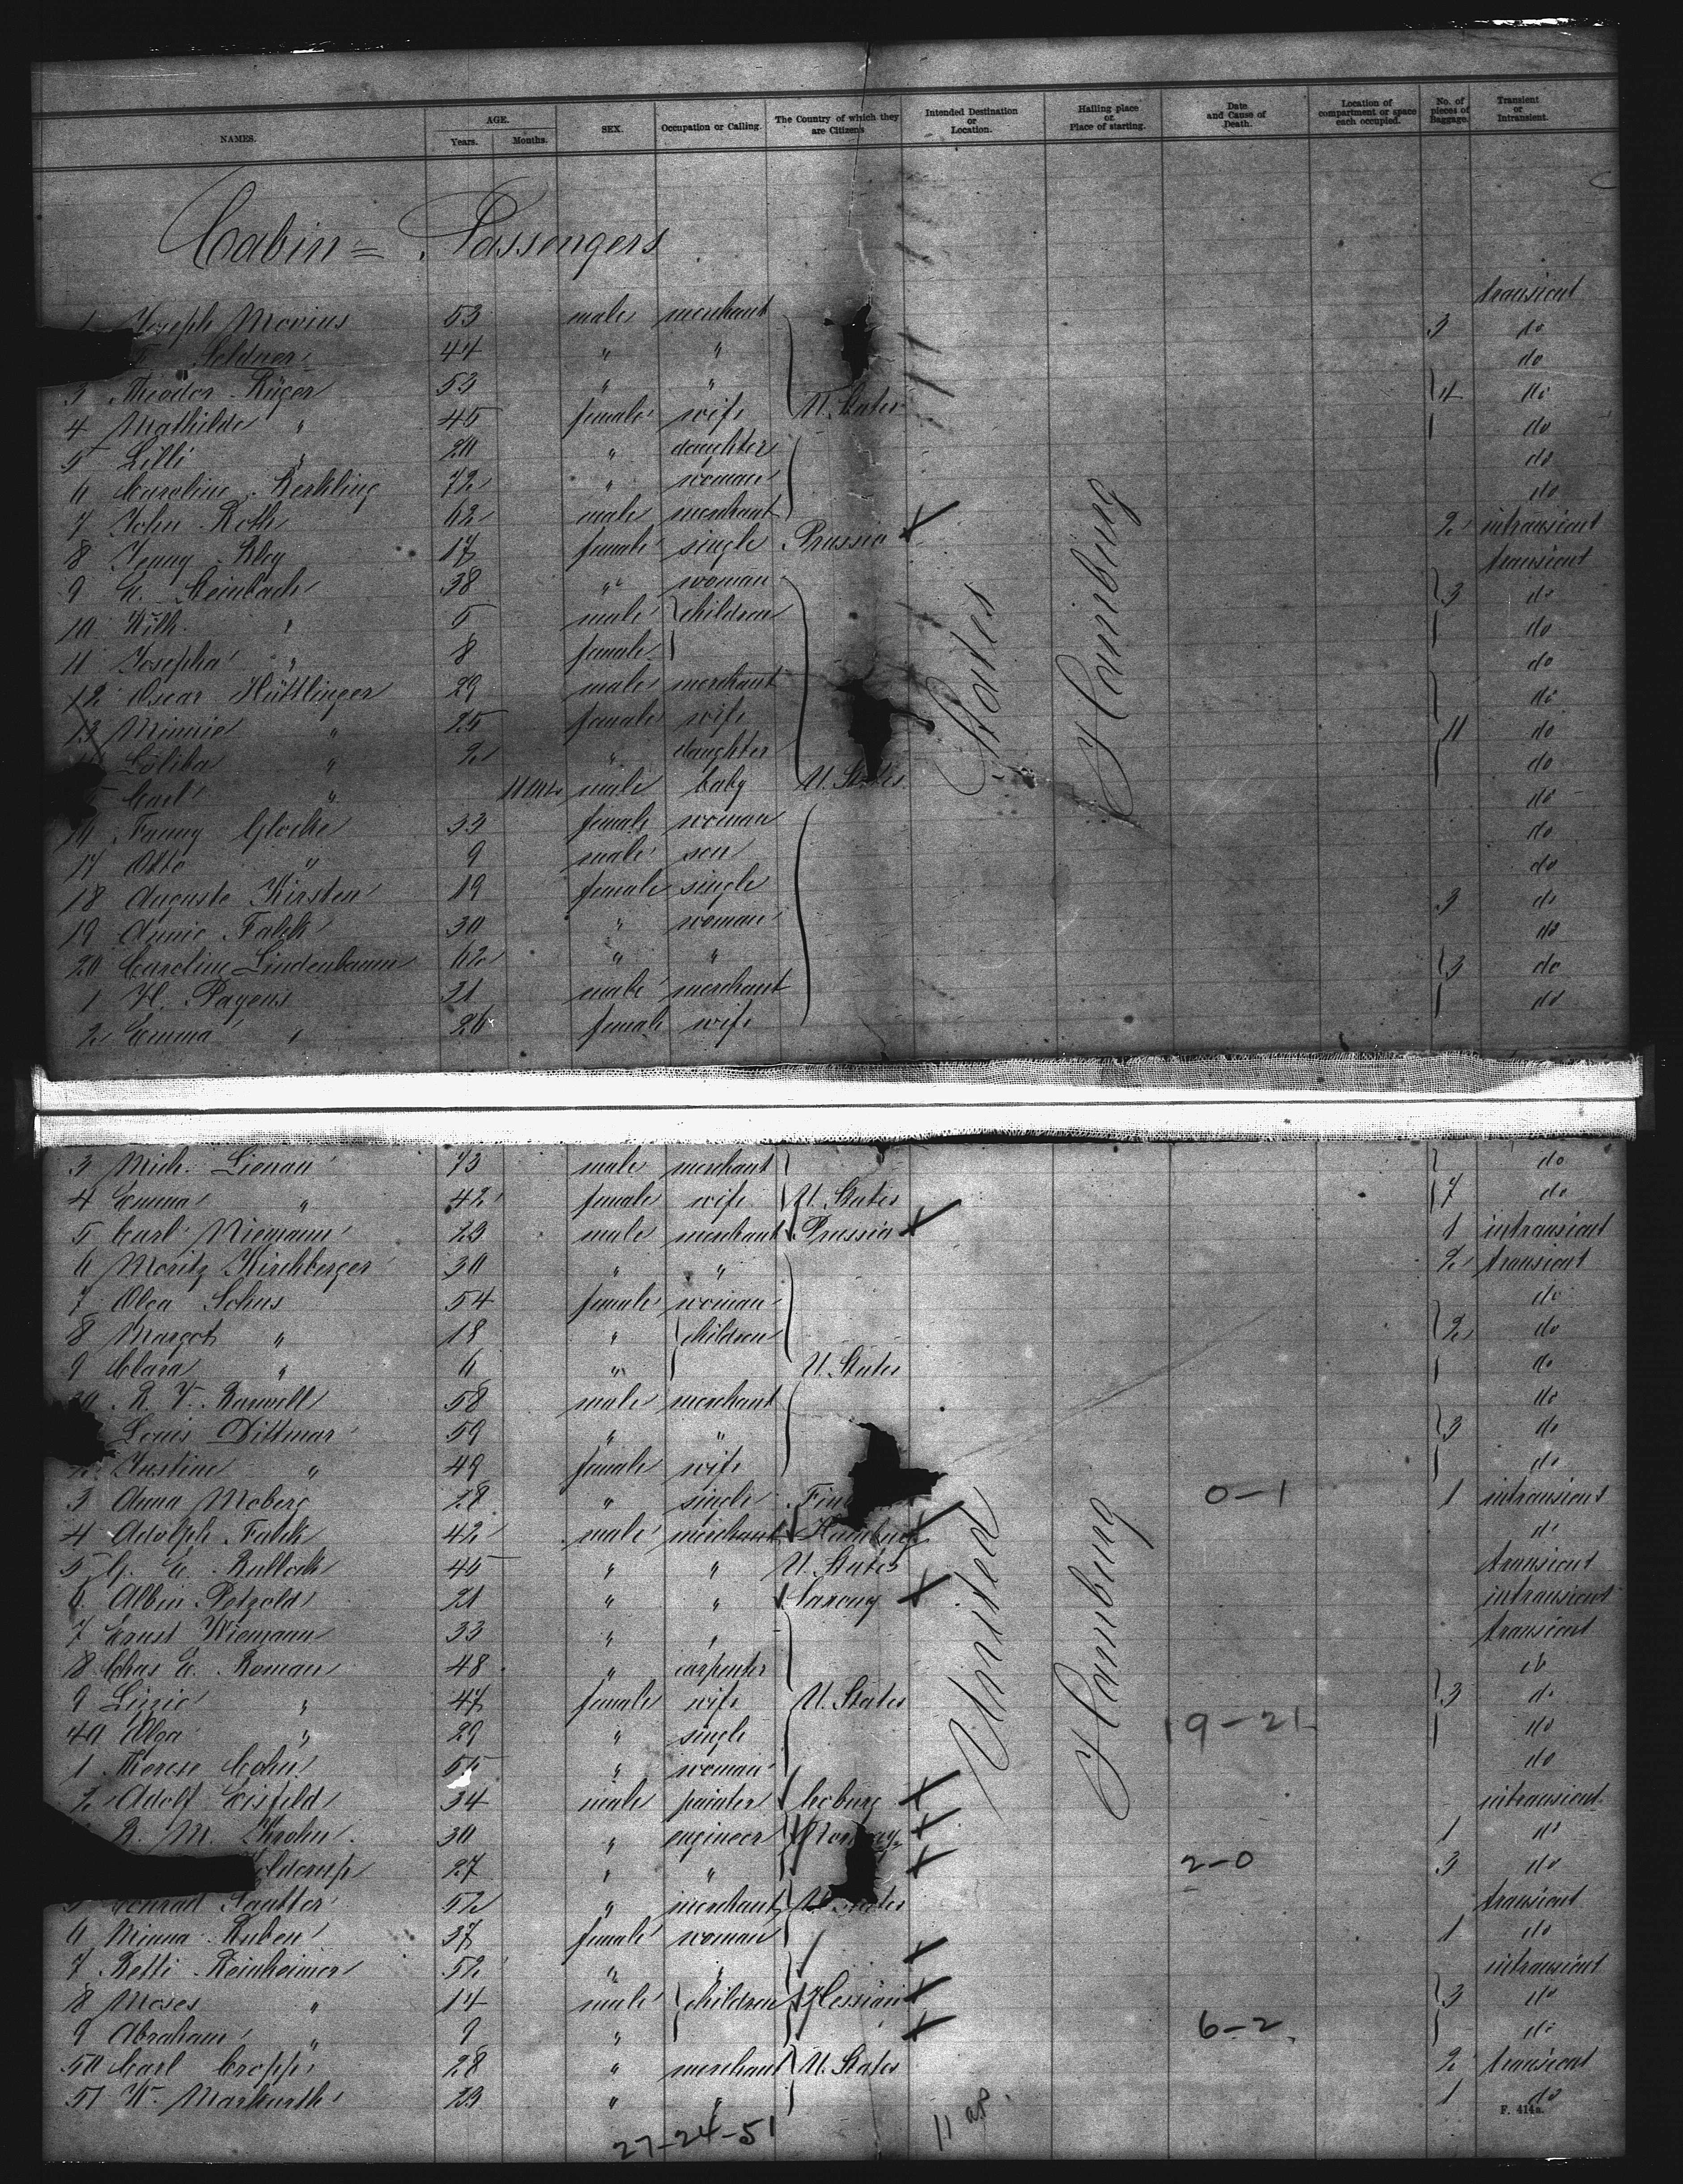 NAMES. AGE. Years. Months. SEX. Occupation or Calling. The Country of which they are Citizens Intended Destination or Location. Hailing place or Place of starting. Date and Cause of Death. Location of compartment or space each occupied. No. of pieces of Baggage. Transient or Intransient.
Cabin = Passengers
Joseph Morius 53 male merchant transient
Seldner 44 " " 3 do
3 Theodor Rüger 53 " " do
4 Mathilde " 45 female wife U. States 4 do
5 Lilli " 20 " daughter do
6 Caroline 72 " woman do
7 John Roth 62 male merchant do
8 Jenny 17 female single Prussia 2 intransient
9 Steinbach 38 " woman transient
10 Wilh. " male children 3 do
11 Josepha " 8 female do
12 Oscar Hüttlinger 29 male merchant do
13 Minnie " 25 female wife do
" 2 " daughter 11 do
Carl " 11 male baby U. States do
16 Fanny Glocke 33 female woman do
17 Otto " 9 male son do
18 Auguste Kirsten 19 female single do
19 Annie Falck 30 " woman 3 do
20 Caroline Lindenbaum 62 " " do
1 H. Payens 31 male merchant 3 do
2 Emma " 26 female wife do
States
Hamburg
3 Mich. Lienau 73 male merchant do
4 Emma " 42 female wife U. States 7 do
5 Carl Niemann 23 male merchant Prussia 1 intransient
6 Moritz Kirchberger 30 " " 2 transient
7 Olga 54 female woman do
8 Margot " 18 " children 2 do
9 Clara " 6 " U. States do
58 male merchant do
Louis Dittmar 59 " " 3 do
Justine " 49 female wife do
3 Anna Moberg 28 " single 0-1 1 intransient
4 Adolph Falck 42 male merchant Hamburg do
5 45 " " U. States transient
6 Albin Petzold 21 " " Saxony intransient
7 Ernst 33 " " transient
8 Chas 48 " carpenter do
9 Lizzie " 47 female wife U. States 3 do
40 Olga " 29 " single 19-21 do
1 Therese Cohn 55 " woman do
2 Adolf Eisfeld 34 male painter Coburg intransient
R. M. Krohn 30 " engineer 1 do
27 " " 2-0 3 do
5 Conrad Sautter 52 " merchant U. States transient
6 Minna Ruben 37 female woman 1 do
7 Betti Reinheimer 52 " " intransient
8 Moses " 14 male children Hessian 3 do
9 Abraham " 9 " 6-2 do
50 Carl Cropp 28 " merchant U. States 2 transient
51 W. 23 " " 1 do
United
Hamburg
F. 414a.
27-24-51
11